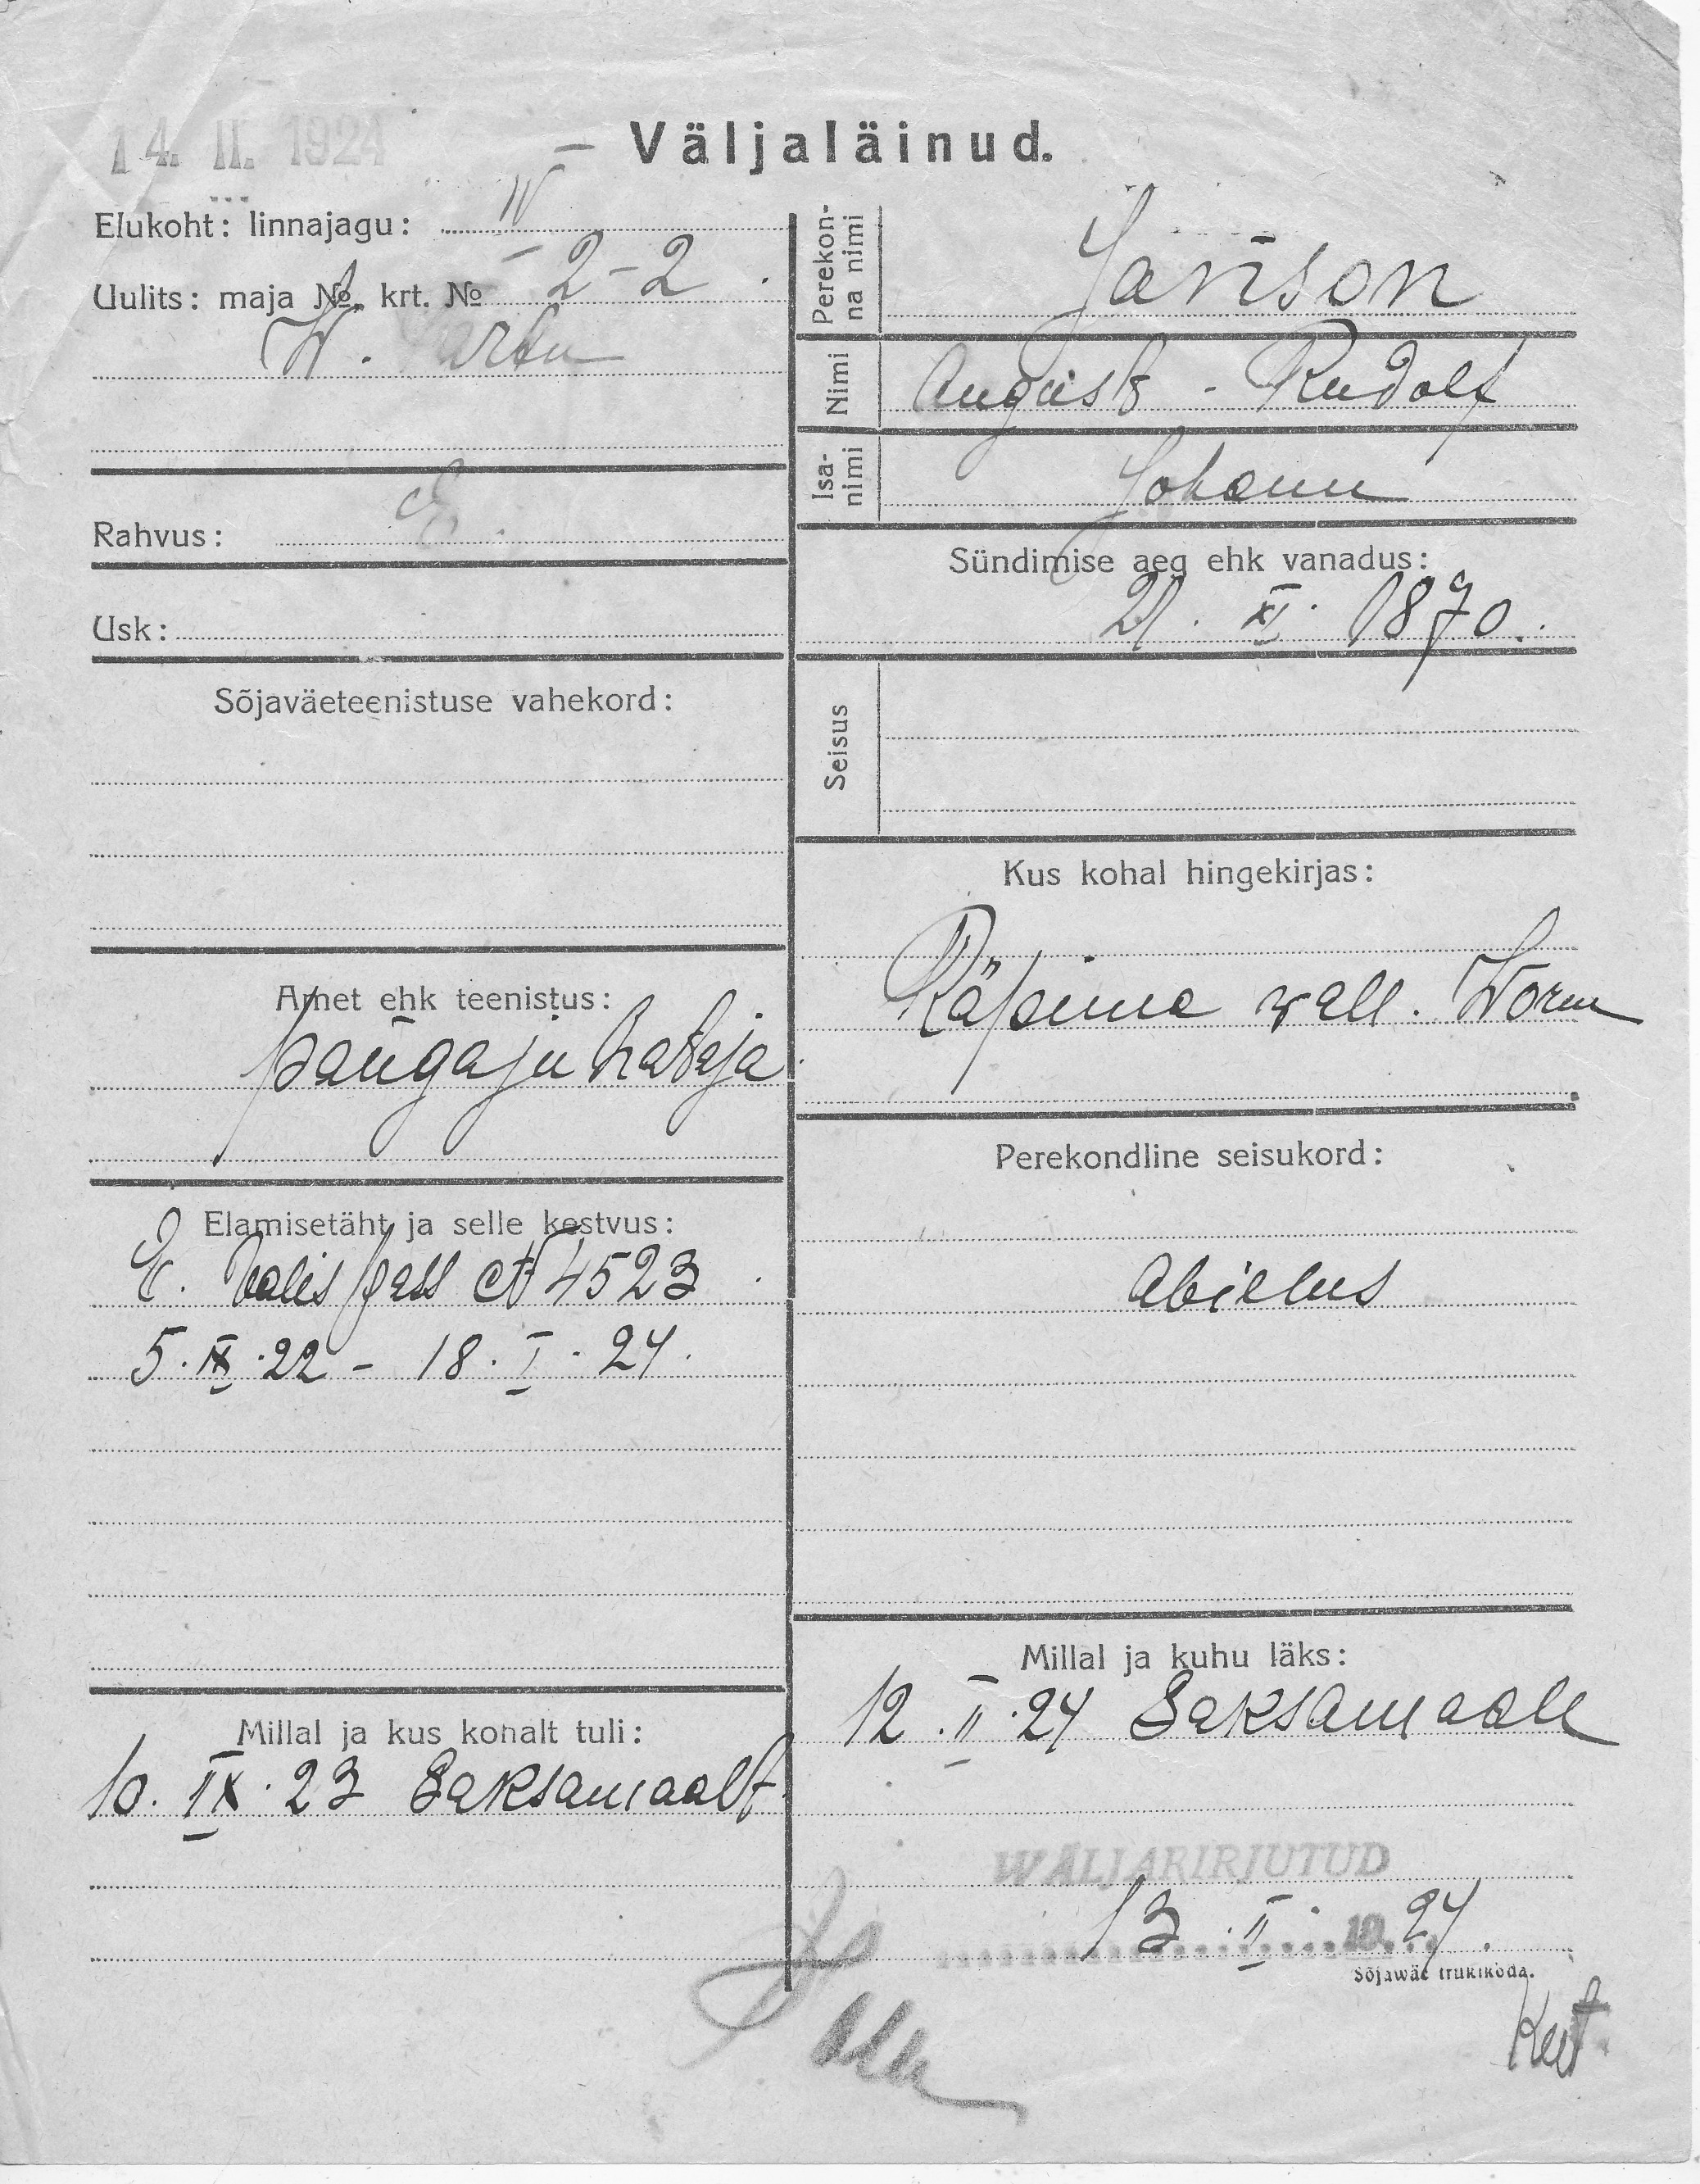 14. II. 1924
Väljaläinud.
Elukoht: linnajagu: IV
Uulits: maja №, krt. № 2-2
W. Tartu
Rahvus: E.
Usk:
Sõjaväeteenistuse vahekord:
Amet ehk teenistus:
pangajuhataja
Elamisetäht ja selle kestvus:
E. valis pass № 4523
5. IX. 22 - 18. I. 24.
Millal ja kus kohalt tuli:
10. IX. 23 Saksamaalt
Perekon-
na nimi
Janson
Nimi
August - Rudolf
Isa-
nimi
Johann
Sündimise aeg ehk vanadus:
21. XI. 1870.
Seisus
Kus kohal hingekirjas:
Räpina wall. Worm
Perekondline seisukord:
abielus
Millal ja kuhu läks:
12. II. 24 Saksamaale
WÄLJAKIRJUTUD
13. II. 1924.
Sõjawäe trükikoda.